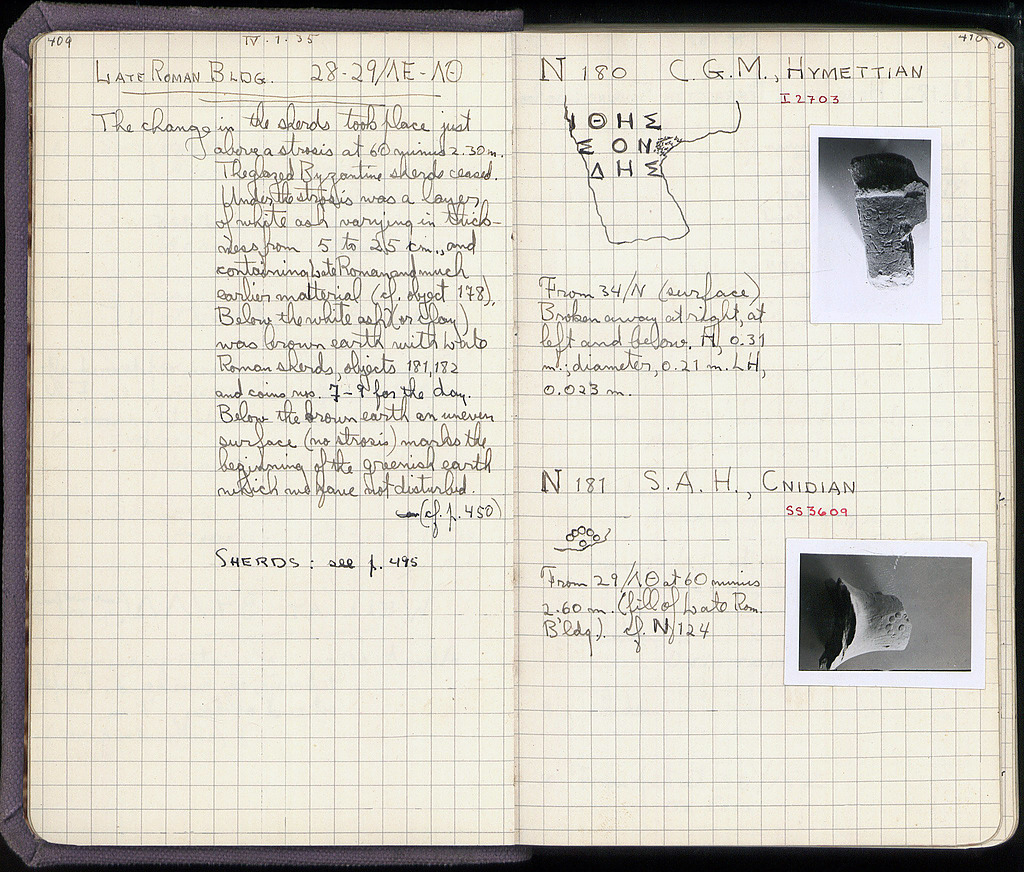 409
IV.1.35
LATE ROMAN BLDG. 28-29/ΛΕ-ΛΘ
The change in the sherds took place just
above a strosis at 60 minus 2.30 m.
The glazed Byzantine sherds ceased.
Under the strosis was a layer
of white ash varying in thick-
ness from 5 to 25 cm., and
containing Late Roman and much
earlier matterial (cf. object 178).
Below the white ash (or clay)
was brown earth with Late
Roman sherds, objects 181, 182
and coins nos. 7-9 for the day.
Below the brown earth an uneven
surface (no strosis) marks the
beginning of the greenish earth
which we have not disturbed.
(cf. p. 450)
SHERDS: see p. 495
410
N 180 C.G.M., HYMETTIAN
I 2703
ΙΘΗΣ
Σ ΟΝ
ΔΗΣ
From 34/Ν (surface)
Broken away at right, at
left and below. H, 0.31
m.; diameter, 0.21 m. LH,
0.023 m.
N 181 S.A.H., CNIDIAN
SS 3609
From 29/ΛΘ at 60 minus
2.60 m. (fill of Late Rom.
B'ldg). cf. N 124